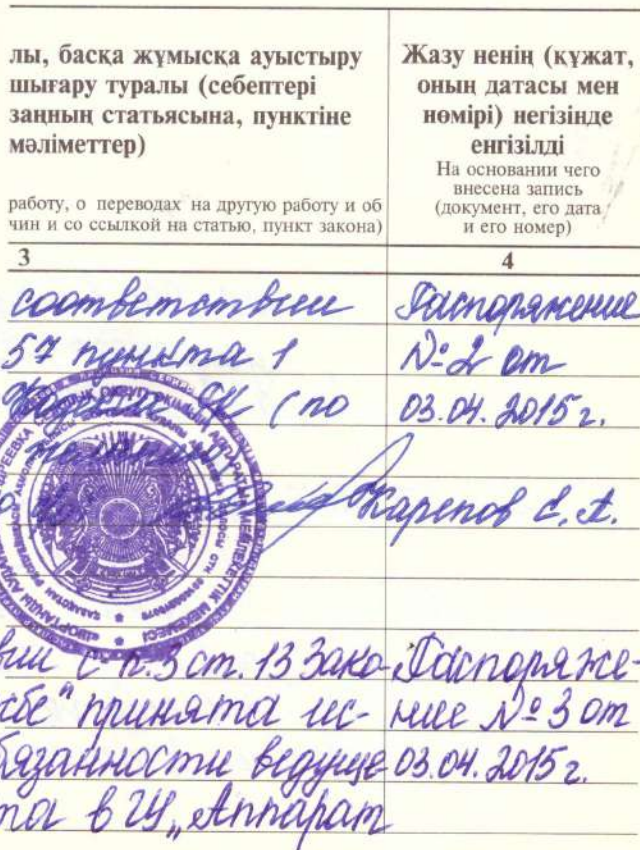 лы, басқа жұмысқа ауыстыру
шығару туралы (себептері
заңның статьясына, пунктіне
мәліметтер)
работу, о переводах на другую работу и об
чин и со ссылкой на статью, пункт закона)
Жазу ненің (құжат,
оның датасы мен
нөмірі) негізінде
енгізілді
На основании чего
внесена запись
(документ, его дата
и его номер)
3
4
соответствии
57 пункта 1
Кодекса РК (по
Распоряжение
№2 от
03.04.2015г.
Карепов С.А.
вии с п.3 ст.13 Зако-
жбе" принята ис-
бязанности ведуще-
та в ГУ „Аппарат
Распоряже-
ние №3 от
03.04.2015г.